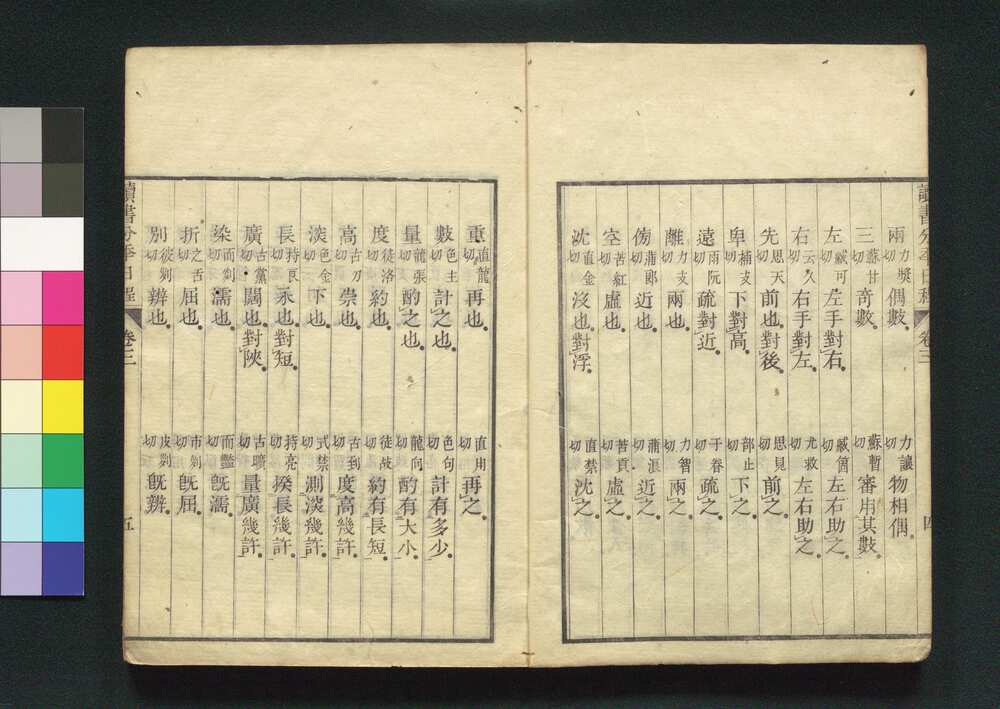 讀書分年日程 卷三 四
兩 力奬切 偶數。 力讓切 物相偶。
三 蘇甘切 奇數。 蘇暫切 審用其數。
左 臧可切 左手對右。 臧箇切 左右助之。
右 云久切 右手對左。 尤救切 左右助之。
先 思天切 前也對後。 思見切 前之。
卑 補支切 下對高。 部止切 下之。
遠 雨阮切 疏對近。 于眷切 疏之。
離 力支切 兩也。 力智切 兩之。
傍 蒲郎切 近也。 蒲浪切 近之。
空 苦紅切 虛也。 苦貢切 虛之。
沈 直金切 沒也對浮。 直禁切 沈之。
重 直龍切 再也。 直用切 再之。
數 色主切 計之也。 色句切 計有多少。
量 龍張切 酌之也。 龍向切 酌有大小。
度 徒洛切 約也。 徒故切 約有長短。
高 古刀切 崇也。 古到切 度高幾許。
深 色金切 下也。 式禁切 測深幾許。
長 持良切 永也對短。 持亮切 揆長幾許。
廣 古黨切 闊也對陿。 古曠切 量廣幾許。
染 而剡切 濡也。 而豔切 旣濡。
折 之舌切 屈也。 市列切 旣屈。
別 彼列切 辨也。 皮列切 旣辨。
讀書分年日程 卷三 五